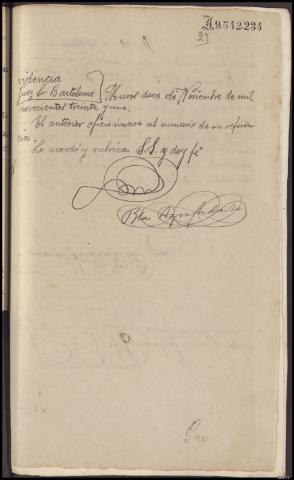 J.9.542.234
23
videncia
Juez Sr Bartolomé } Mural doce de Noviembre de mil
novecientos treinta y uno.
El anterior oficio únase al sumario de su referen
cia
Lo acordó y rubrica S.S. y doy fé